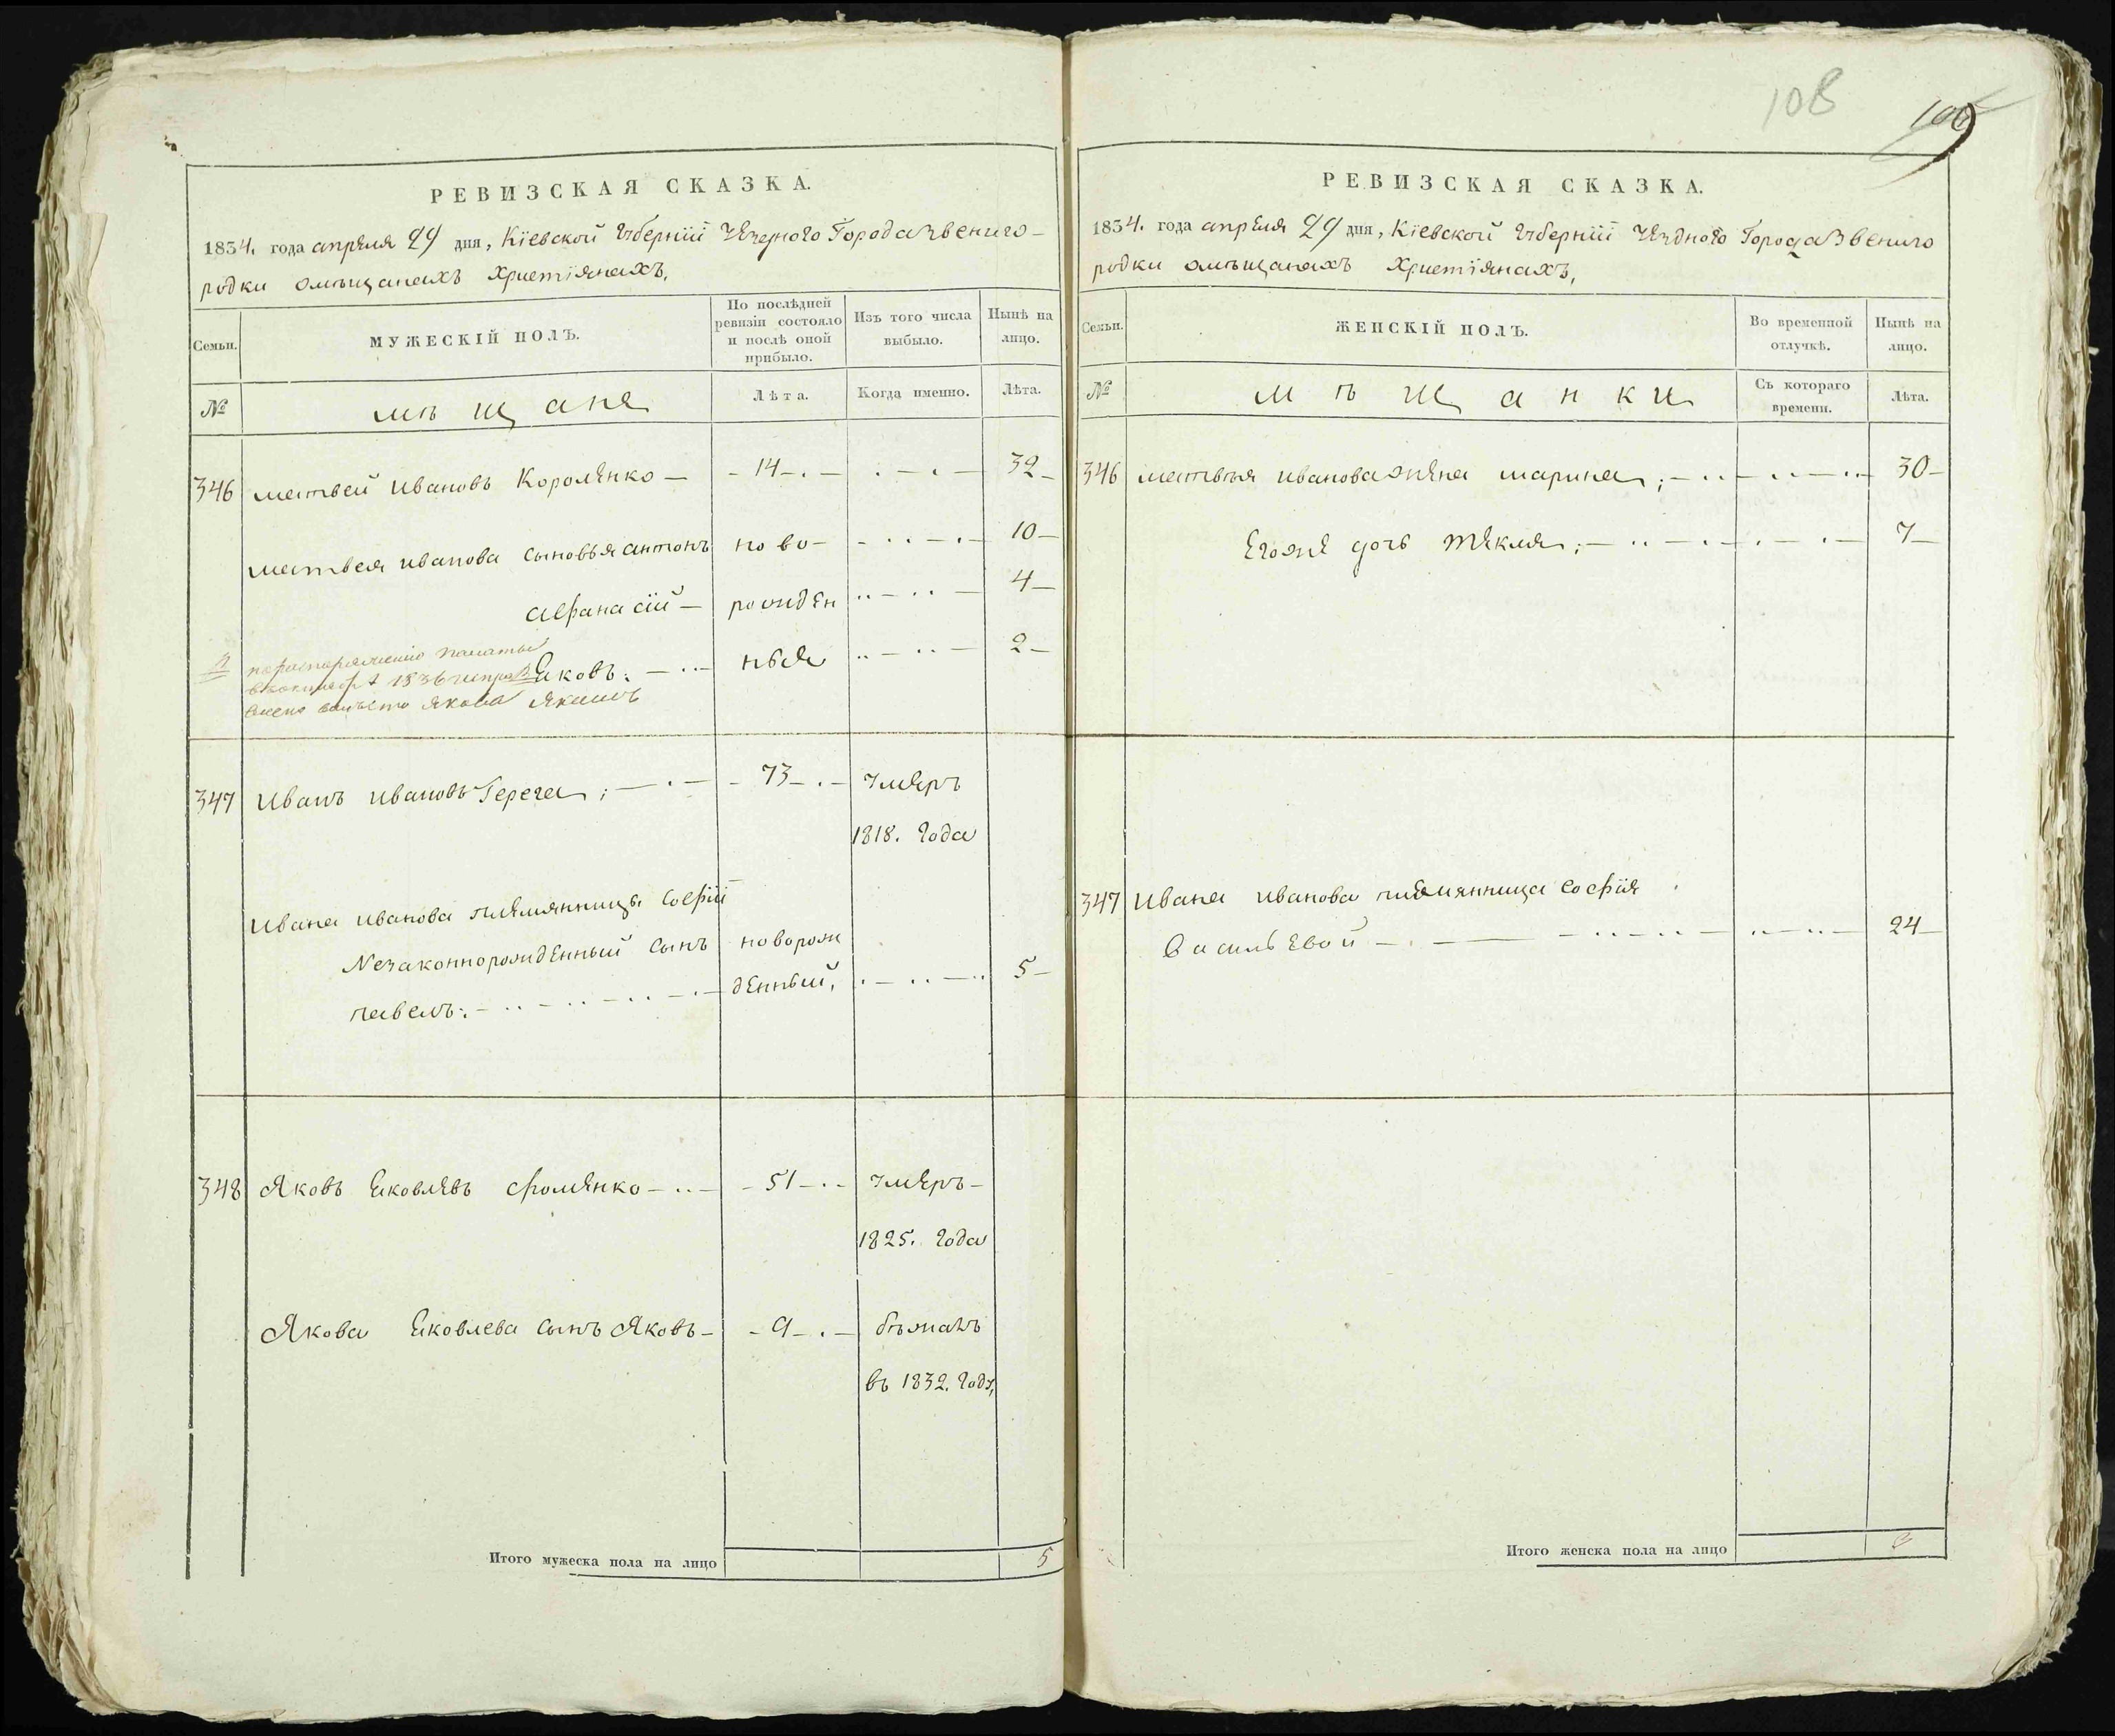 108
РЕВИЗСКАЯ СКАЗКА.
1834. года апреля 29 дня, Кіевской Губерніи Уезднаго Города Звениго-
родки омѣщанахъ Христіянахъ,
Семьи.
МУЖЕСКІЙ ПОЛЪ.
По послѣдней
ревизіи состояло
и послѣ оной
прибыло.
Изъ того числа
выбыло.
Нынѣ на
лицо.
№
мѣщане
Лѣта.
Когда именно.
Лѣта.
346 матвей ивановъ Короленко — 14 — 32
матвея иванова сыновья антонъ ново- 10
афанасій — рожден 4
по распоряженію палаты
1836
Яковъ: ныя 2
вместо якова Якимъ
347 иванъ ивановъ Герега; — 73 — умеръ
1818. года
ивана иванова племянницы Софіи
незаконнорожденный сынъ новорож
павелъ: денный, 5
348 Яковъ яковлевъ фоменко — 51 — умеръ —
1825. года
Якова яковлева сынъ Яковъ — 9 — бѣжалъ
въ 1832. году,
Итого мужеска пола на лицо 5
РЕВИЗСКАЯ СКАЗКА.
1834. года апреля 29 дня, Кіевской Губерніи Уезднаго Города Звениго
родки омѣщанахъ Христіянахъ,
Семьи.
ЖЕНСКІЙ ПОЛЪ.
Во временной
отлучкѣ.
Нынѣ на
лицо.
№
мѣщанки
Съ котораго
времени.
Лѣта.
346 матвѣя иванова жена марина; — 30
Егоже дочь текля; — 7
347 ивана иванова племянница софія
васильевой — 24
Итого женска пола на лицо 3